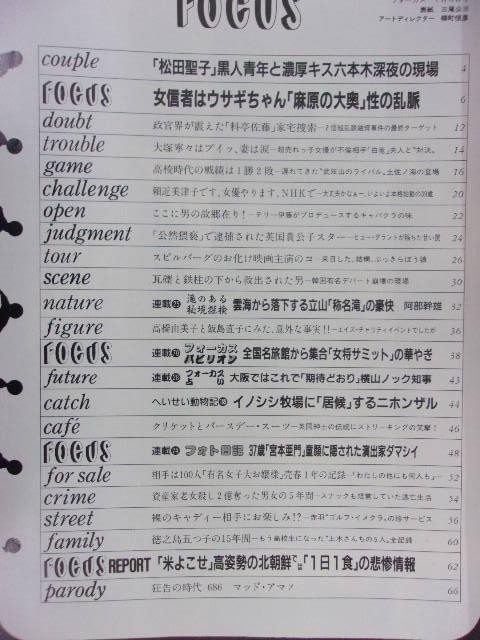 FOCUS
表紙 三尾公三
アートディレクター 柳町恒彦
couple 「松田聖子」黒人青年と濃厚キス六本木深夜の現場 4
FOCUS 女信者はウサギちゃん「麻原の大奥」性の乱脈 6
doubt 政官界が震えた「料亭佐藤」家宅捜索 12
trouble 大塚寧々はプイッ、妻は涙―超売れっ子女優が不倫相手"白竜"夫人と"対決" 14
game 高校時代の戦績は1勝2敗―遅れてきた"武双山のライバル、土佐ノ海の登場 16
challenge 頼近美津子です、女優やります、NHKで―大丈夫かなぁー、いよいよ本格始動の39歳 20
open ここに男の故郷在り!―テリー伊藤がプロデュースするキャバクラの味 22
judgment 「公然猥褻」で逮捕された英国貴公子スター―ヒュー・グラントが陥ちた甘い罠 24
tour スピルバーグのお化け映画主演のコ―来日した、結構、ぶっきらぼう娘 26
scene 瓦礫と鉄柱の下から救出された男―韓国有名デパート崩壊の現場 30
nature 連載㉓ 滝のある秘境探検 雲海から落下する立山「称名滝」の豪快 阿部幹雄 32
figure 高橋由美子と飯島直子にみた、意外な事実!!―エイズ・チャリティイベントでしたが 36
FOCUS 連載⑳ フォーカスパビリオン 全国名旅館から集合「女将サミット」の華やぎ 38
future 連載 フォーカスよい 大阪ではこれで「期待どおり」横山ノック知事 43
catch へいせい動物記 イノシシ牧場に「居候」するニホンザル 44
café クリケットとバースデー・スーツ―英国紳士の伝統にストリーキングの笑撃! 46
FOCUS 連載㉔ フォト日記 37歳「宮本亜門」童顔に隠された演出家ダマシイ 48
for sale 相手は100人「有名女子大お嬢様」売春1年の記録―「わたしの他にも何人も」… 52
crime 資産家老女殺し2億奪った男女の5年間―スナックも経営していた逃亡生活 54
street 裸のキャディー相手にお楽しみ!?―赤羽"ゴルフ・イメクラ"の珍サービス 56
family 徳之島五つ子の15年間―もう高校生になった"上木さんちの5人"全記録 60
FOCUS REPORT 「米よこせ」高姿勢の北朝鮮では「1日1食」の悲惨情報 62
parody 狂告の時代 686 マッド・アマノ 66